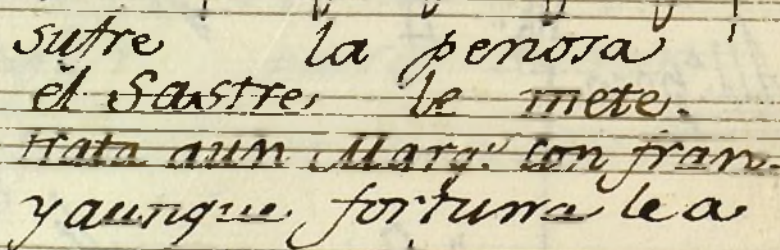 sufre la penosa
el Sastre le mete.
trata aun Marq.s con fran-
y aunque fortuna le a